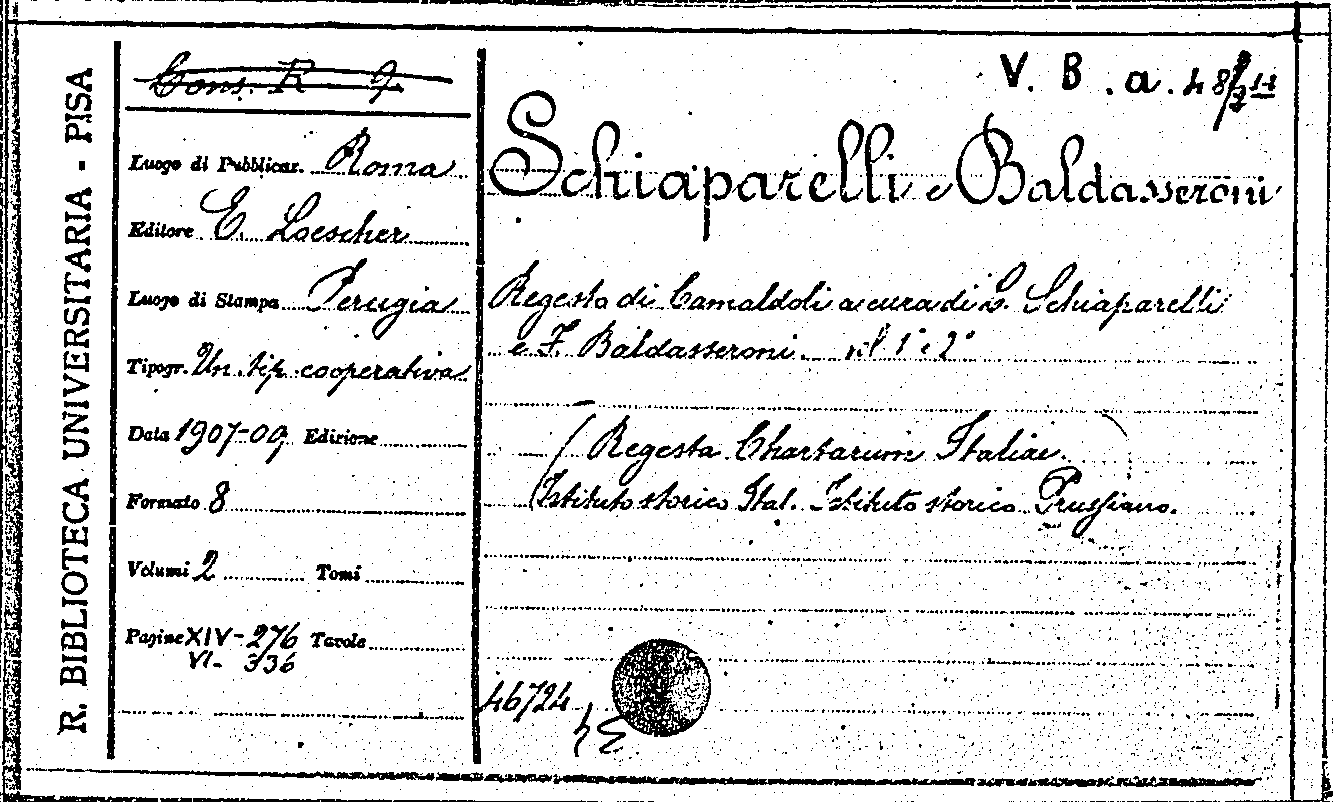 R. BIBLIOTECA UNIVERSITARIA - PISA
Cons. R
V. B. a. 48
Schiaparelli e Baldasseroni
Luogo di Pubblicaz. Roma
Editore E. Loescher
Luogo di Stampa Perugia
Tipogr. Un. tip. cooperativa
Data 1907-09 Edizione
Formato 8
Volumi 2 Tomi
Pagine XIV-276 Tavole
VI-336
Regesto di Camaldoli a cura di L. Schiaparelli
e F. Baldasseroni. vol 1° e 2°
(Regesta Chartarum Italiae.
(Istituto storico Ital. Istituto storico Prussiano.
46724